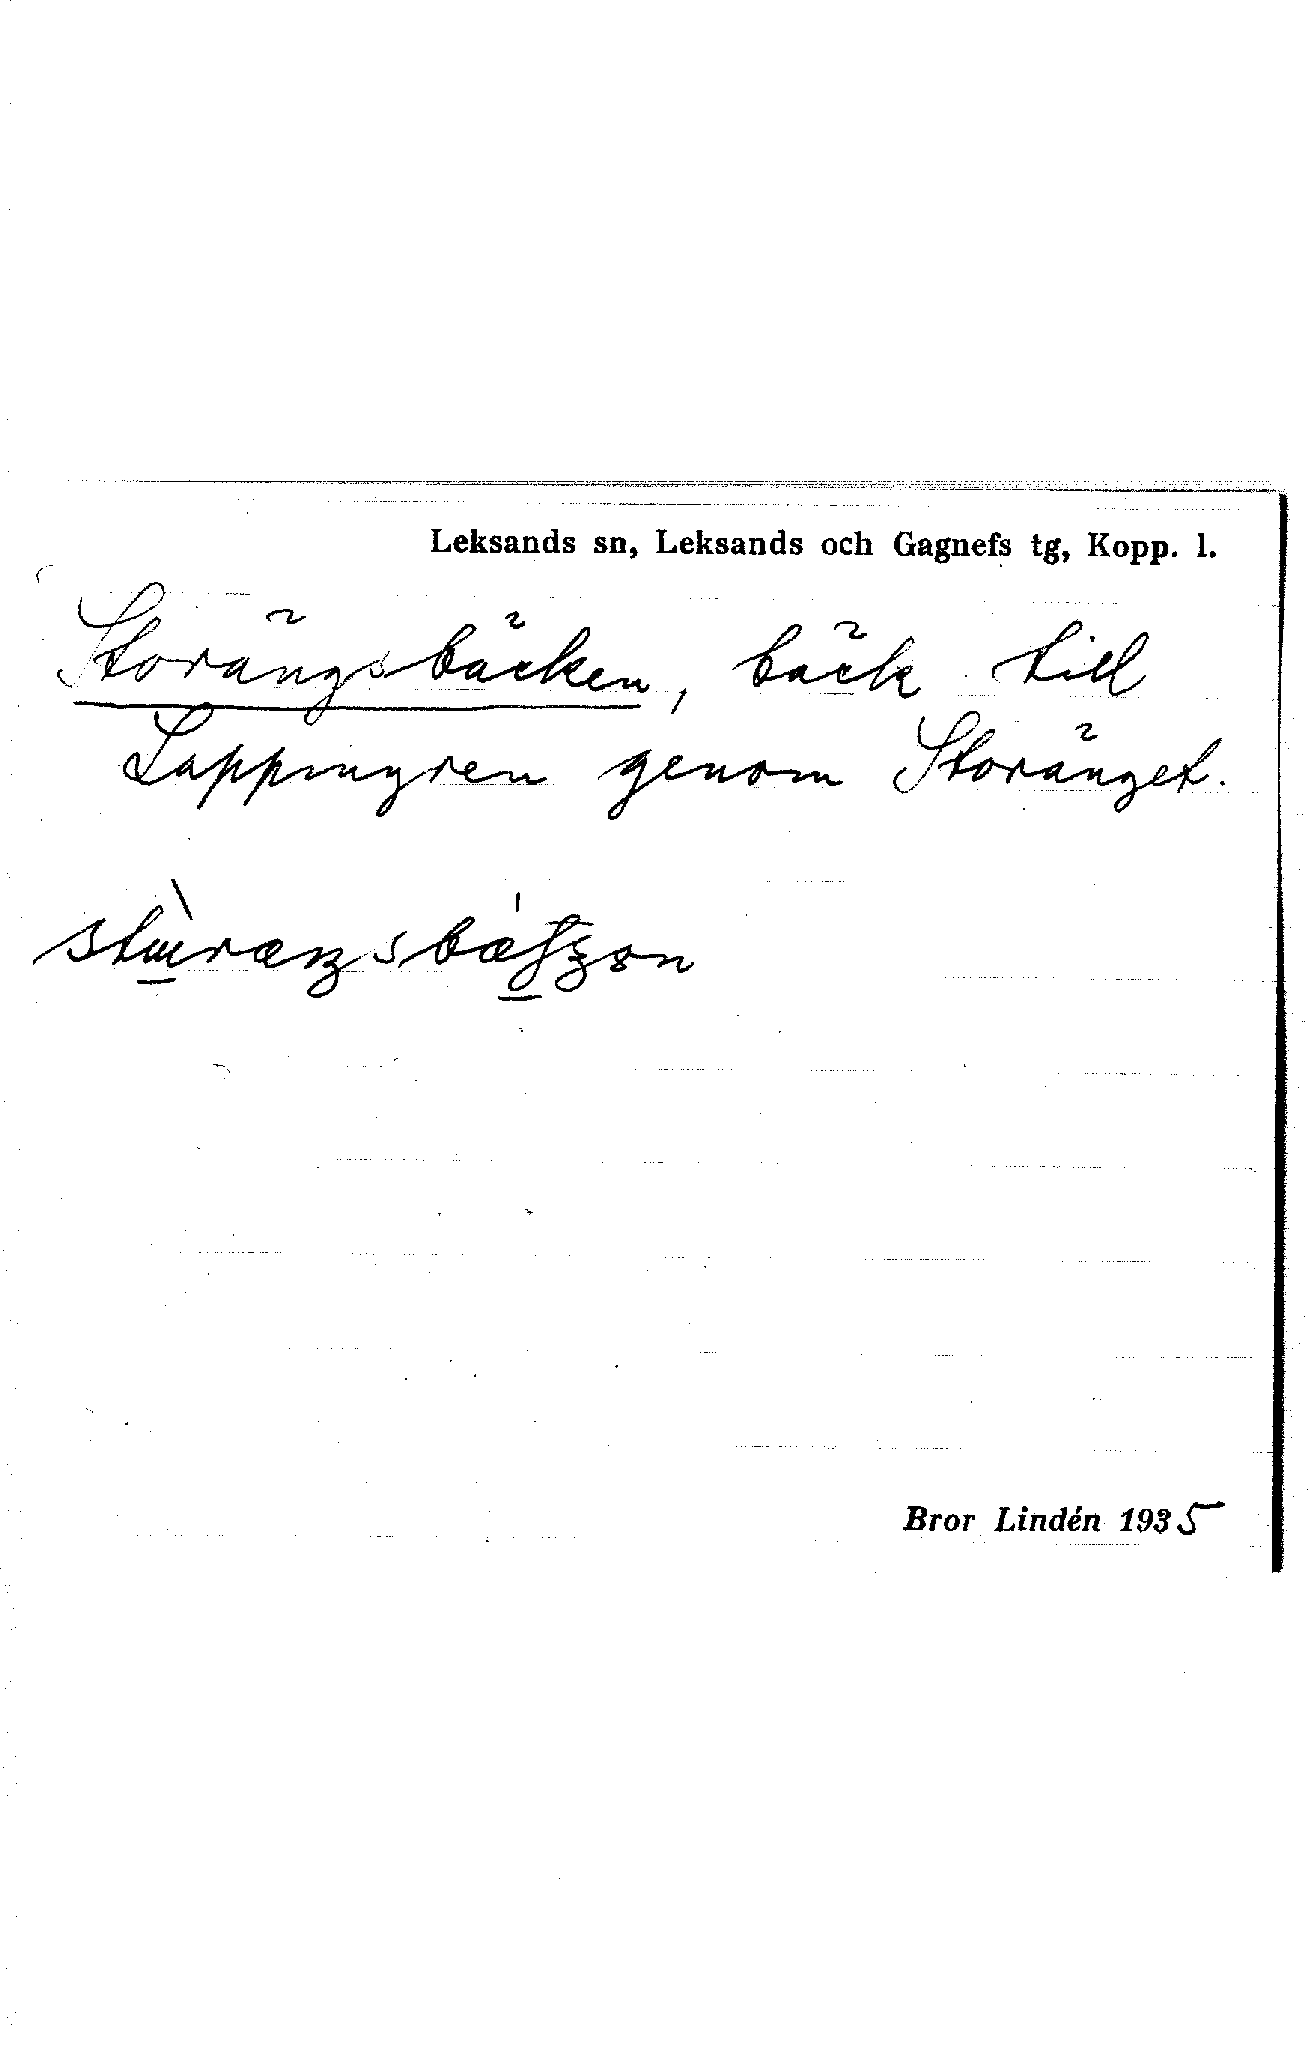 Leksands sn, Leksands och Gagnefs tg, Kopp. l.
Storängsbäcken, bäck till
Lappingren genom Storänget.
Bror Lindén 1935